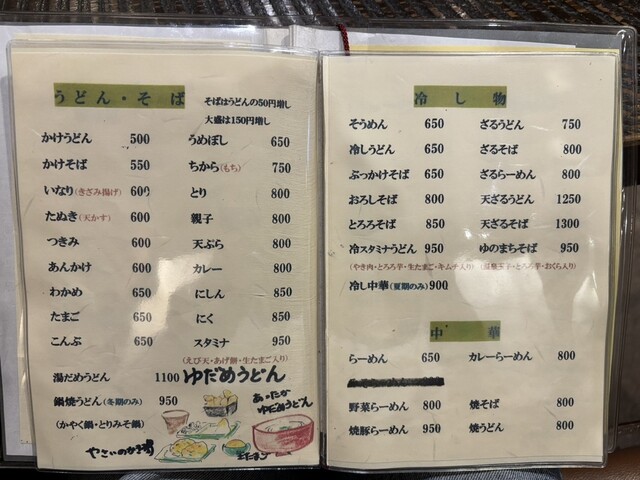 うどん・そば
そばはうどんの50円増し
大盛は150円増し
かけうどん 500
かけそば 550
いなり(きざみ揚げ) 600
たぬき(天かす) 600
つきみ 600
あんかけ 600
わかめ 650
たまご 650
こんぶ 650
うめぼし 650
ちから(もち) 750
とり 800
親子 800
天ぷら 800
カレー 800
にしん 850
にく 850
スタミナ 950
(えび天・あげ餅・生たまご入り)
湯だめうどん 1100
ゆだめうどん
鍋焼うどん(冬期のみ) 950
(かやく鍋・とりみそ鍋)
あったか
ゆだめうどん
冷し物
そうめん 650
冷しうどん 650
ぶっかけそば 650
おろしそば 800
とろろそば 850
冷スタミナうどん 950
(やき肉・とろろ芋・生たまご・キムチ入り)
冷し中華(夏期のみ) 900
ざるうどん 750
ざるそば 800
ざるらーめん 800
天ざるうどん 1250
天ざるそば 1300
ゆのまちそば 950
(温泉玉子・とろろ芋・おくら入り)
中華
らーめん 650
カレーらーめん 800
野菜らーめん 800
焼そば 800
焼豚らーめん 950
焼うどん 800